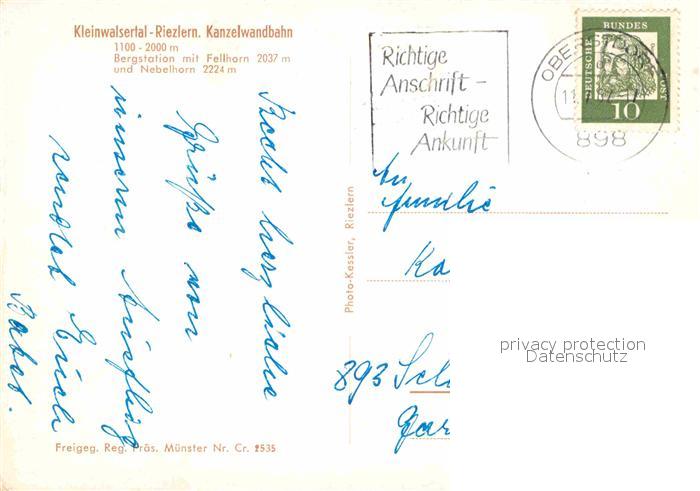 Kleinwalsertal - Riezlern. Kanzelwandbahn
1100 - 2000 m
Bergstation mit Fellhorn 2037 m
und Nebelhorn 2224 m
Recht herzliche
Grüße von
unserem Ausflug
sendet Euch
Freigeg. Reg. Präs. Münster Nr. Cr. 2535
Photo-Kessler, Riezlern
Richtige
Anschrift -
Richtige
Ankunft
898
DEUTSCHE BUNDES POST
10
An
Familie
Ka
893 Sch
Gar
privacy protection
Datenschutz